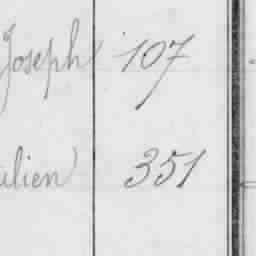 Joseph) 107
ulien) 351